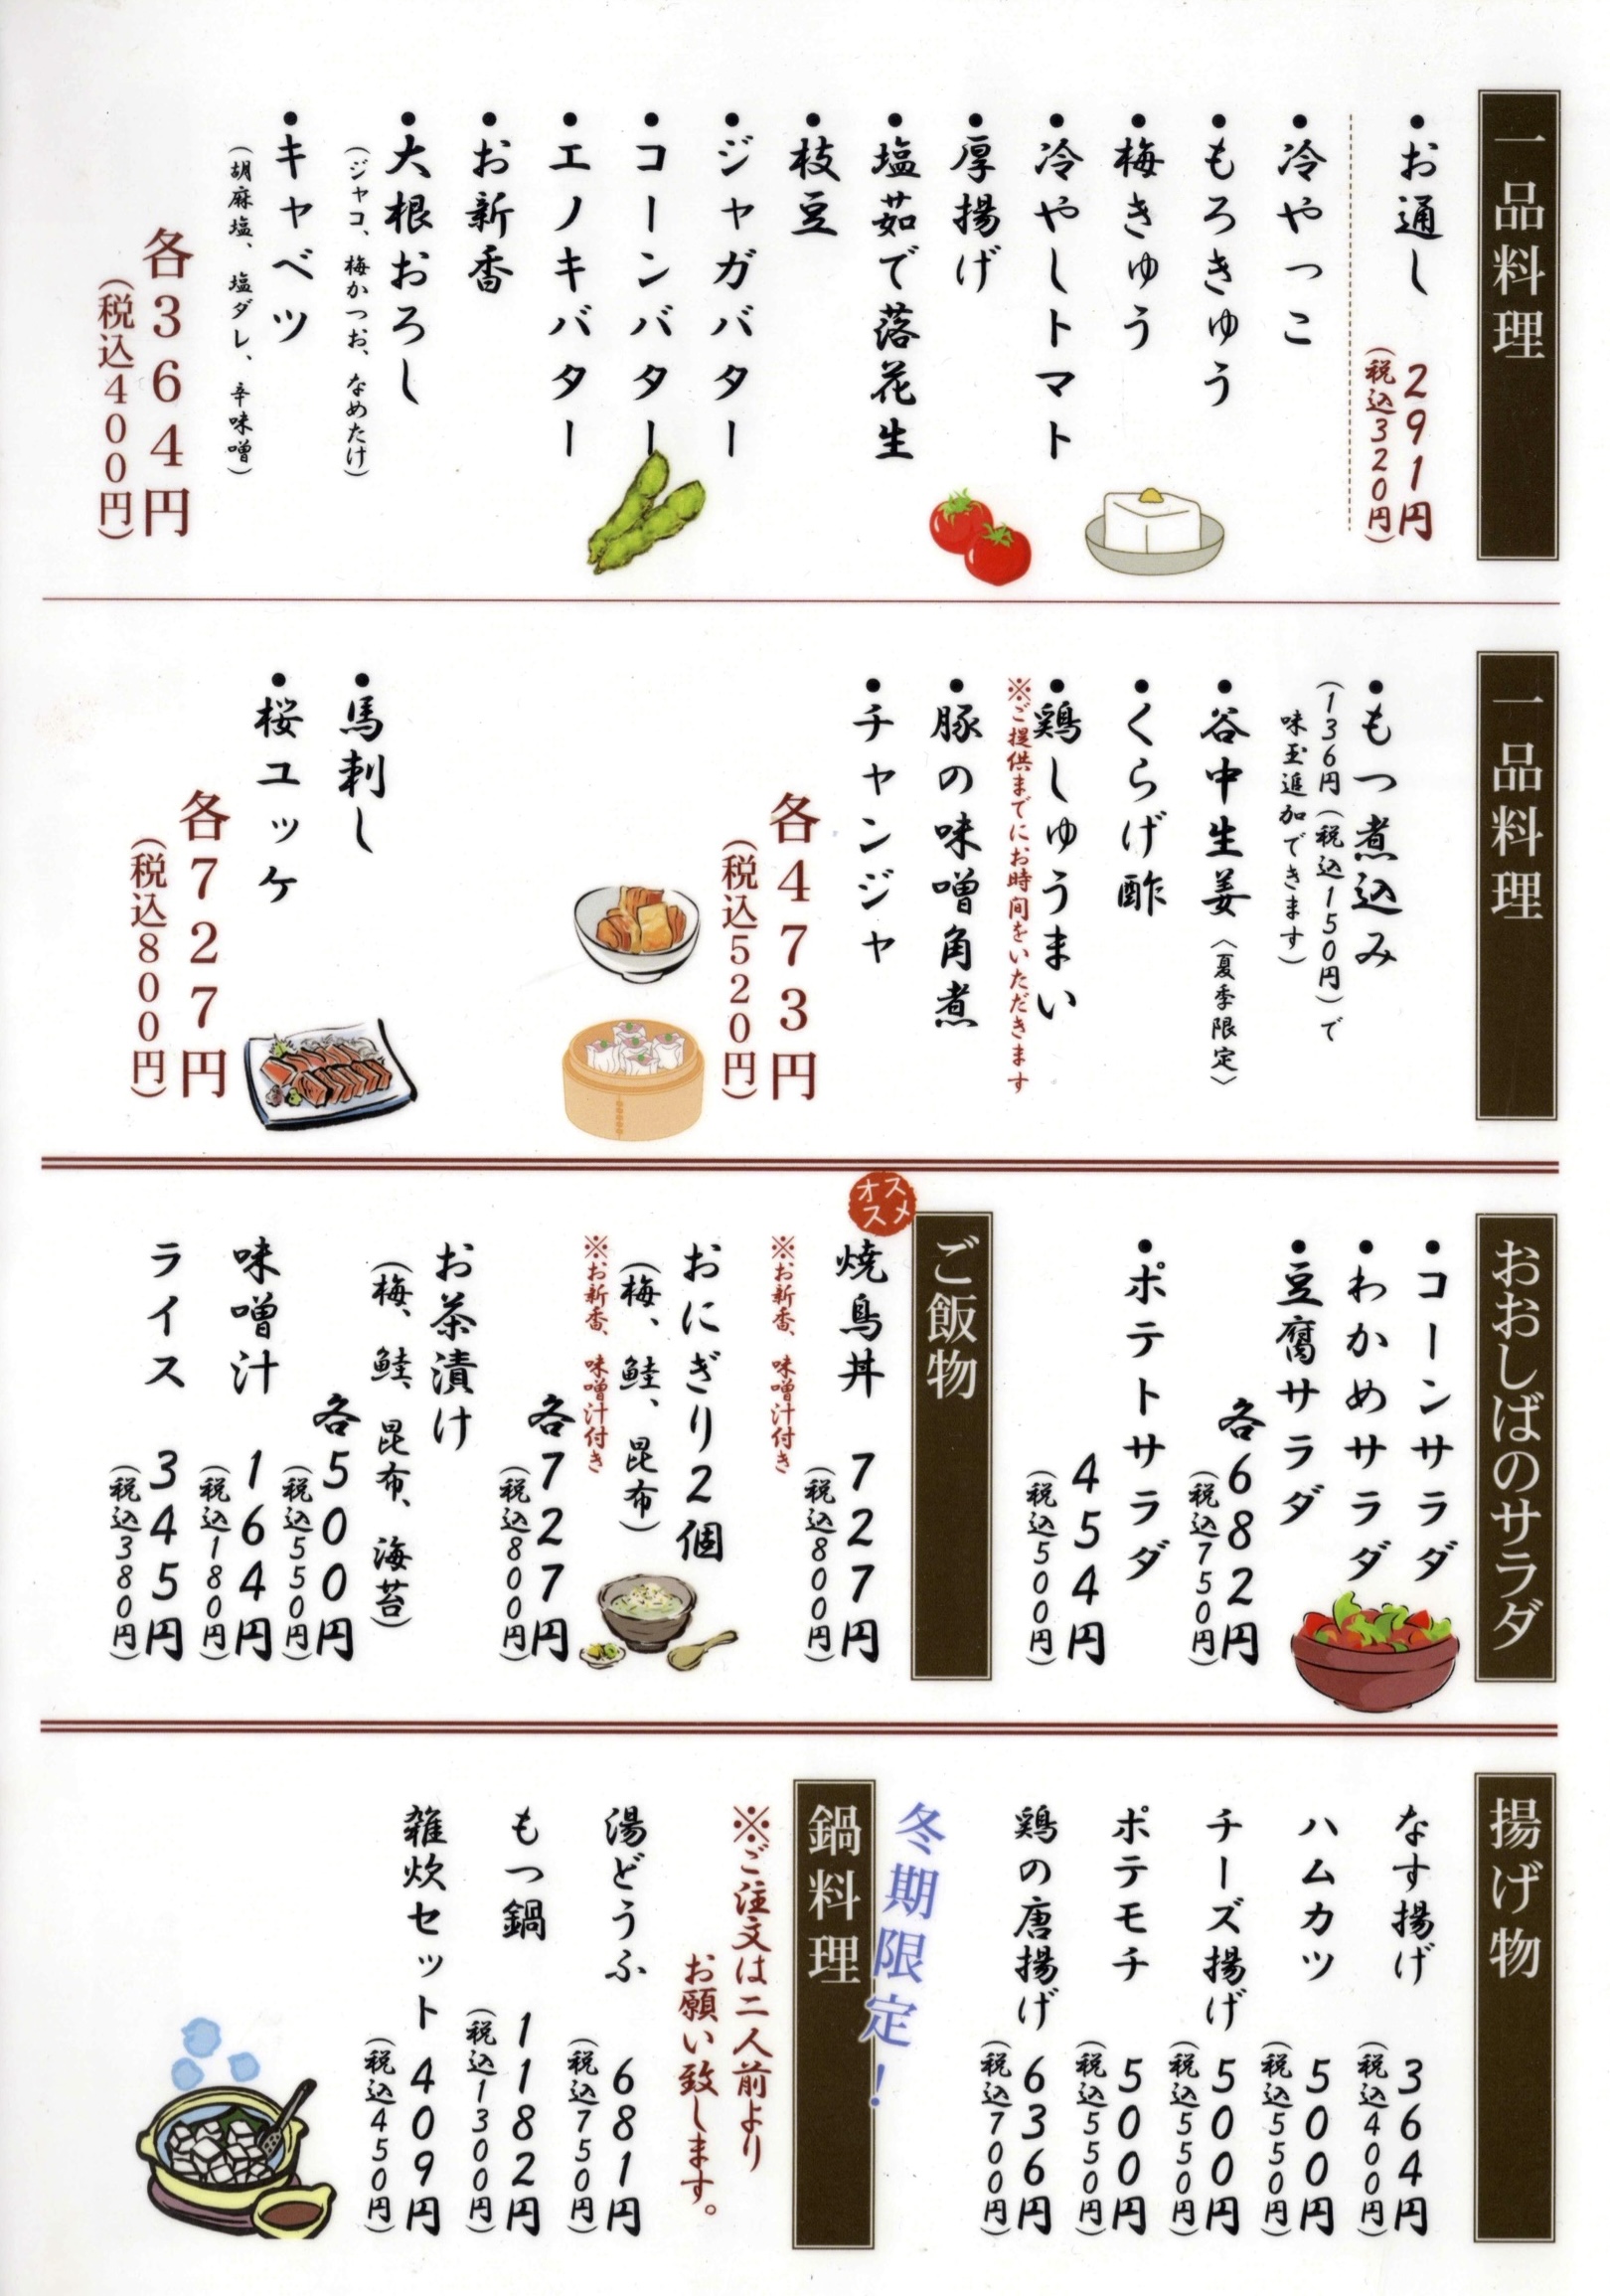 一品料理
お通し 291円
（税込320円）
冷やっこ
もろきゅう
梅きゅう
冷やしトマト
厚揚げ
塩茹で落花生
枝豆
ジャガバター
コーンバター
エノキバター
お新香
大根おろし
（ジャコ、梅かつお、なめたけ）
キャベツ
（胡麻塩、塩ダレ、辛味噌）
各364円
（税込400円）
一品料理
もつ煮込み
（136円（税込150円）で
味玉追加できます）
谷中生姜〈夏季限定〉
くらげ酢
鶏しゅうまい
※ご提供までにお時間をいただきます
豚の味噌角煮
チャンジャ
各473円
（税込520円）
馬刺し
桜ユッケ
各727円
（税込800円）
おおしばのサラダ
コーンサラダ
わかめサラダ
豆腐サラダ
各682円
（税込750円）
ポテトサラダ
454円
（税込500円）
ご飯物
オススメ
焼鳥丼 727円
（税込800円）
※お新香、味噌汁付き
おにぎり2個
（梅、鮭、昆布）
※お新香、味噌汁付き
各727円
（税込800円）
お茶漬け
（梅、鮭、昆布、海苔）
各500円
（税込550円）
味噌汁 164円
（税込180円）
ライス 345円
（税込380円）
揚げ物
なす揚げ 364円
（税込400円）
ハムカツ 500円
（税込550円）
チーズ揚げ 500円
（税込550円）
ポテモチ 500円
（税込550円）
鶏の唐揚げ 636円
（税込700円）
冬期限定！
鍋料理
※ご注文は二人前より
お願い致します。
湯どうふ 681円
（税込750円）
もつ鍋 1182円
（税込1300円）
雑炊セット 409円
（税込450円）